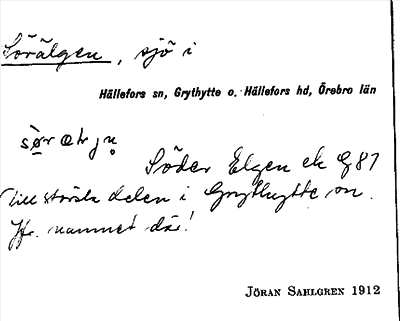 Sörälgen, sjö i
Hällefors sn, Grythytte o. Hällefors hd, Örebro län
Söder Elgen ek G 87
till största delen i Grythytte sn.
Jfr. namnet där!
JÖRAN SAHLGREN 1912